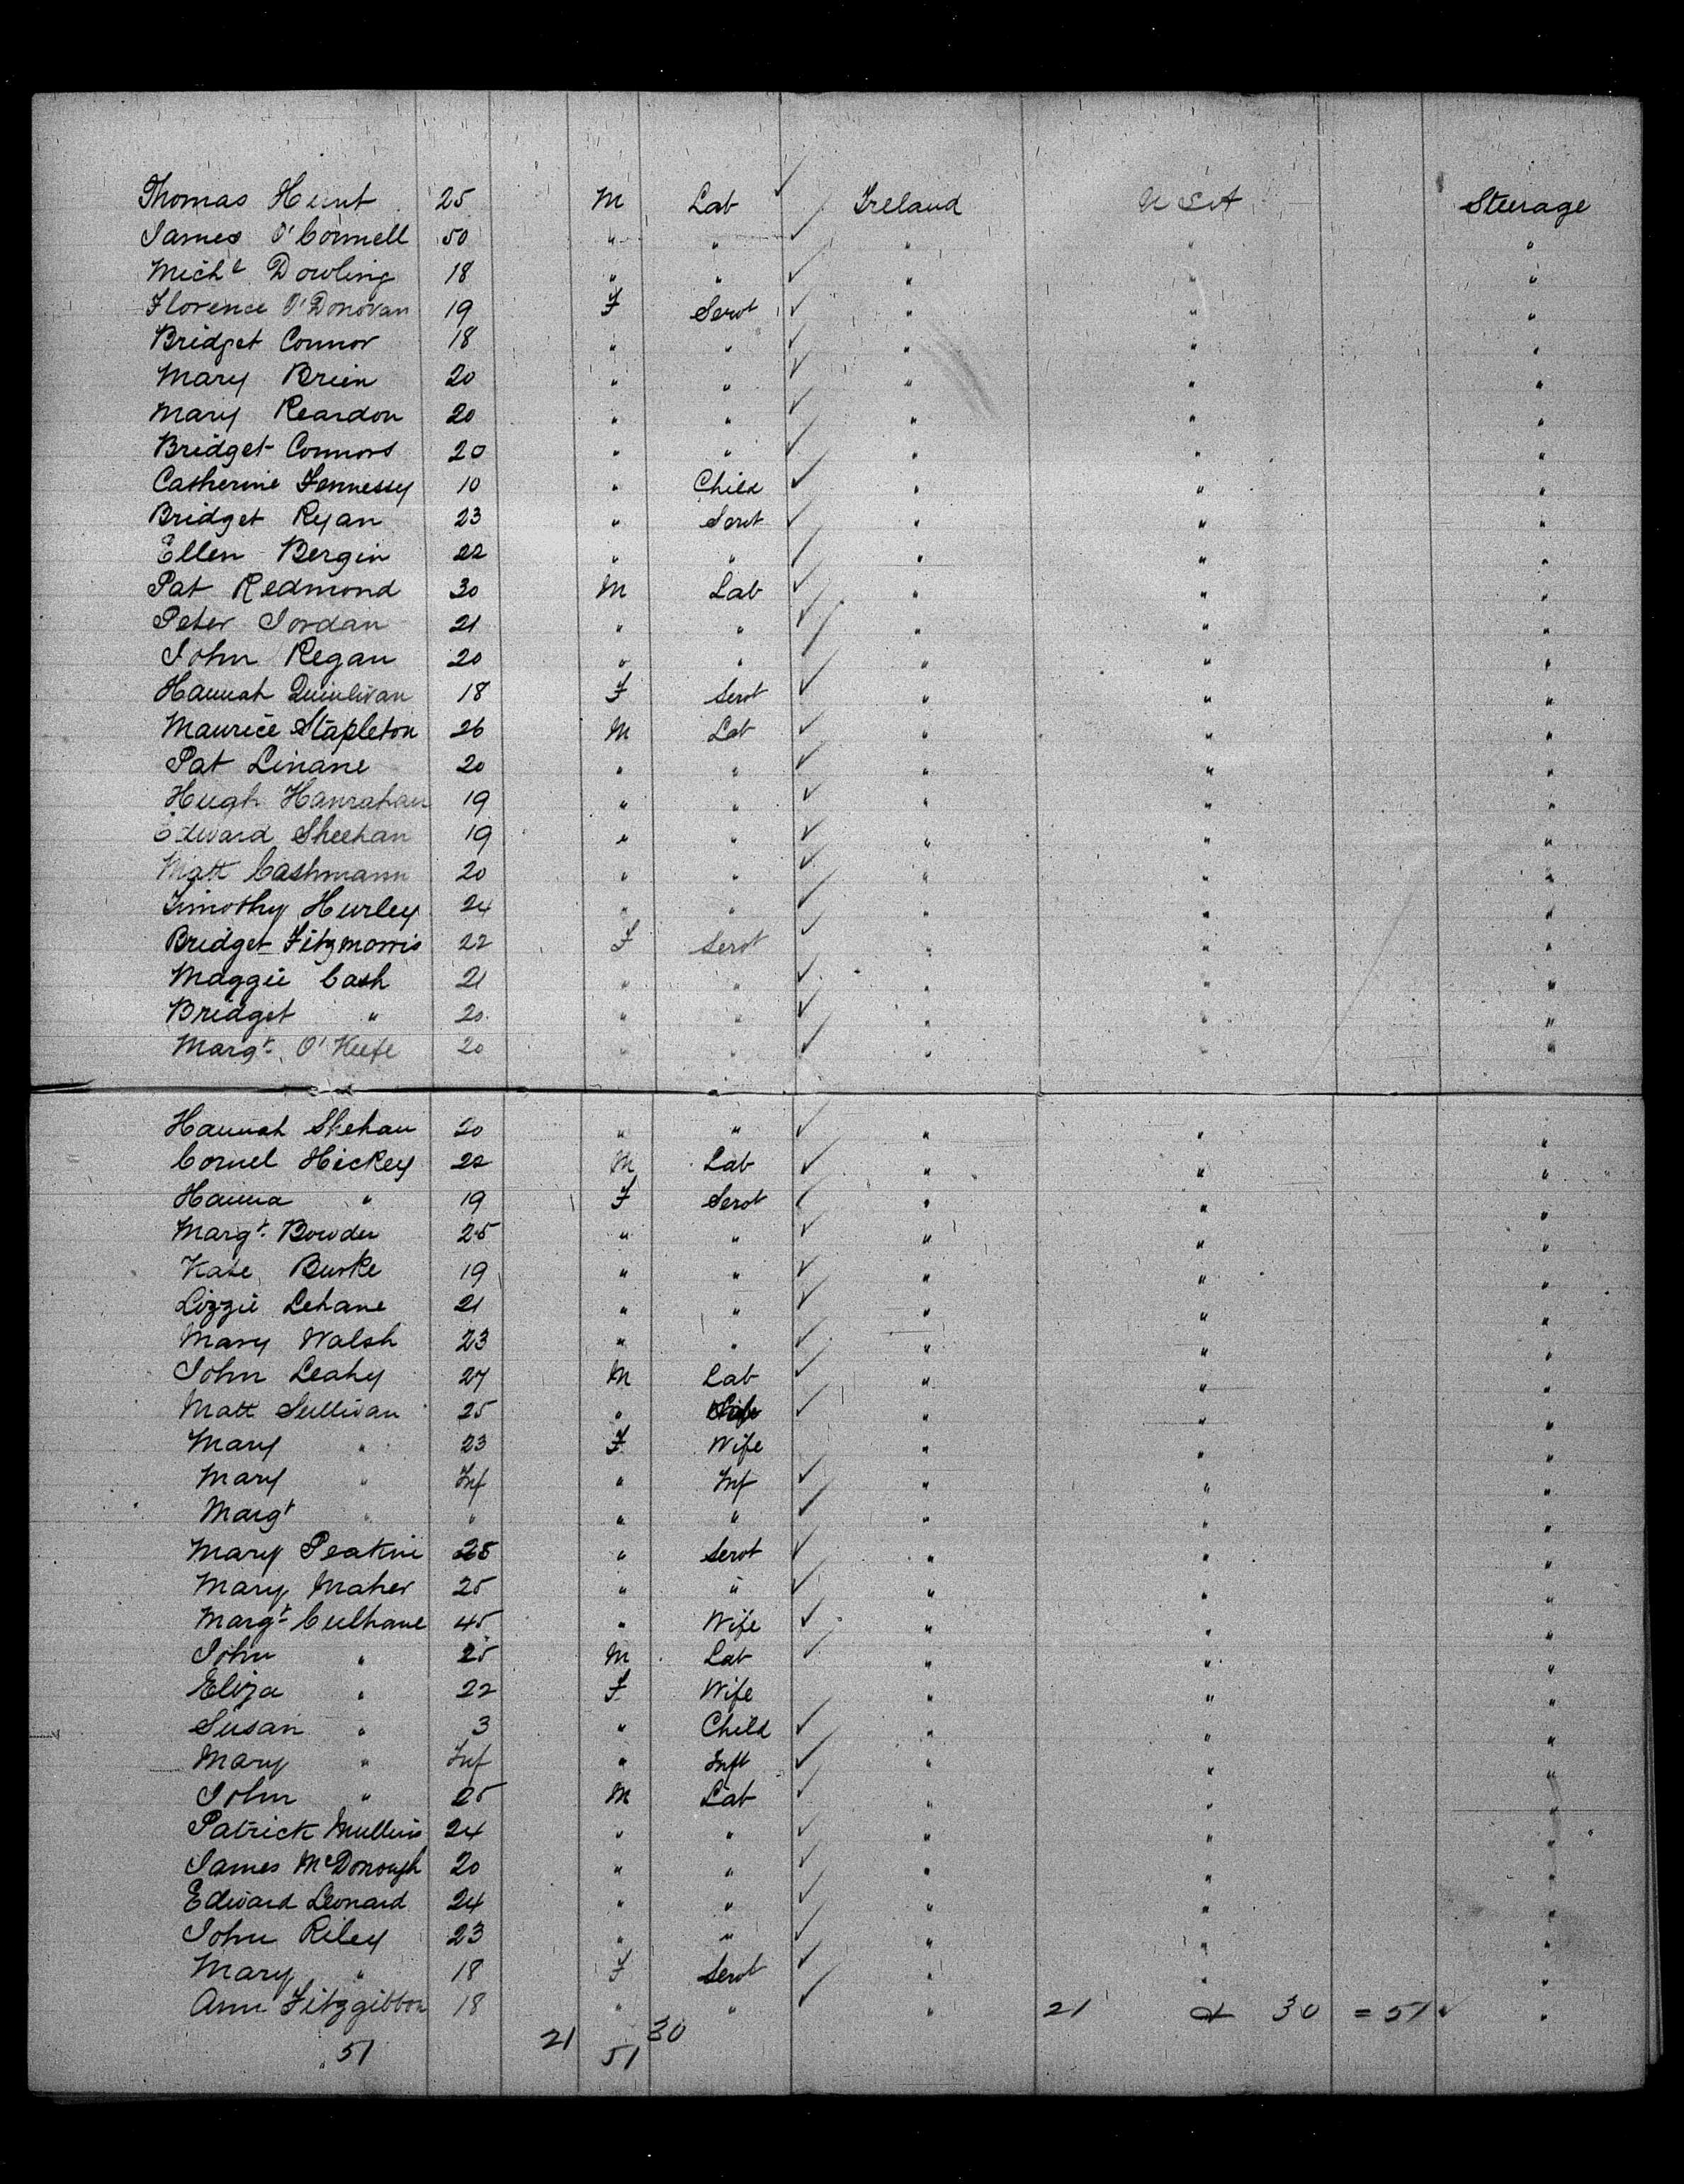 Thomas Hunt 25 M Lab ✓ Ireland U S A Steerage
James O'Connell 50 " " ✓ " " "
Michl Dowling 18 " " ✓ " " "
Florence O'Donovan 19 F Servt ✓ " " "
Bridget Connor 18 " " ✓ " " "
Mary Brien 20 " " ✓ " " "
Mary Reardon 20 " " ✓ " " "
Bridget Connors 20 " " ✓ " " "
Catherine Fennessy 10 " Child ✓ " " "
Bridget Ryan 23 " Servt ✓ " " "
Ellen Bergin 22 " " ✓ " " "
Pat Redmond 30 M Lab ✓ " " "
Peter Jordan 21 " " ✓ " " "
John Regan 20 " " ✓ " " "
Hannah Quinlivan 18 F Servt ✓ " " "
Maurice Stapleton 26 M Lab ✓ " " "
Pat Linane 20 " " ✓ " " "
Hugh Hanrahan 19 " " ✓ " " "
Edward Sheehan 19 " " ✓ " " "
Matt Cashmann 20 " " ✓ " " "
Timothy Hurley 24 " " ✓ " " "
Bridget Fitzmorris 22 F Servt ✓ " " "
Maggie Cash 21 " " ✓ " " "
Bridget " 20 " " ✓ " " "
Margt O'Keefe 20 " " ✓ " " "
Hannah Shehan 20 " " ✓ " " "
Cornel Hickey 22 M Lab ✓ " " "
Hanna " 19 F Servt ✓ " " "
Margt Bowden 25 " " ✓ " " "
Kate Burke 19 " " ✓ " " "
Lizzie Lehane 21 " " ✓ " " "
Mary Walsh 23 " " ✓ " " "
John Leahy 27 M Lab ✓ " " "
Matt Sullivan 25 " ✓ " " "
Mary " 23 F Wife " " "
Mary " Inf " Inf ✓ " " "
Margt " " " " ✓ " " "
Mary 25 " Servt ✓ " " "
Mary Maher 25 " " ✓ " " "
Margt Culhane 45 " Wife ✓ " " "
John " 25 M Lab ✓ " " "
Eliza " 22 F Wife " " "
Susan " 3 " Child ✓ " " "
Mary " Inf " Inft ✓ " " "
John " 25 M Lab ✓ " " "
Patrick Mullins 24 " " ✓ " " "
James McDonough 20 " " ✓ " " "
Edward Leonard 24 " " ✓ " " "
John Riley 23 " " ✓ " " "
Mary " 18 F Servt ✓ " " "
Ann Fitzgibbon 18 " " ✓ " 21 & 30 = 51 ✓ "
51 21 30
51